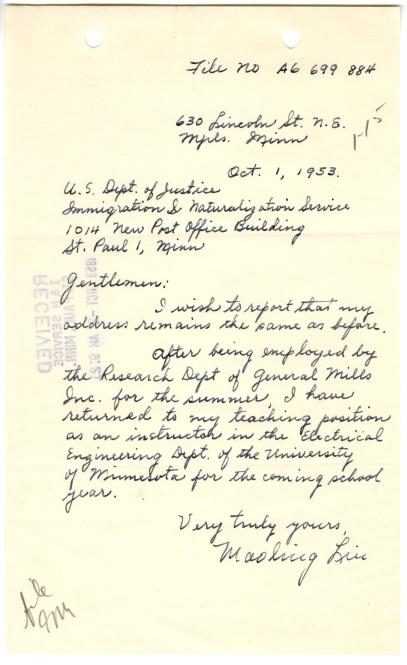 File No A6 699 884
630 Lincoln St. N.E.
Mpls. Minn
Oct. 1, 1953.
U.S. Dept. of Justice
Immigration & Naturalization Service
1014 New Post Office Building
St. Paul 1, Minn
Gentlemen:
I wish to report that my
address remains the same as before.
After being employed by
the Research Dept of General Mills
Inc. for the summer, I have
returned to my teaching position
as an instructor in the Electrical
Engineering Dept. of the University
of Minnesota for the coming school
year.
Very truly yours,
Maoling Liu
RECEIVED
file